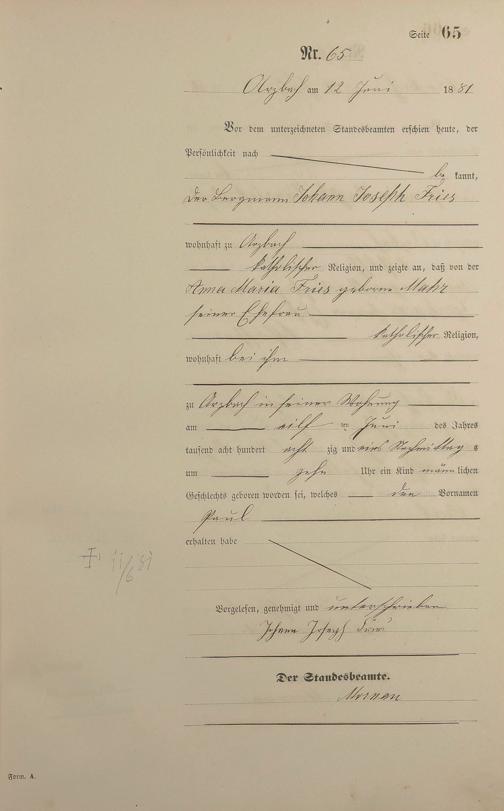 Seite 65
Nr. 65
Arzbach am 12 Juni 1881
Vor dem unterzeichneten Standesbeamten erschien heute, der
Persönlichkeit nach
be kannt,
der Bergmann Johann Joseph Fries
wohnhaft zu Arzbach
katholischer Religion, und zeigte an, daß von der
Anna Maria Fries geborne Mahr
seiner Ehefrau
katholischer Religion,
wohnhaft bei ihm
zu Arzbach in seiner Wohnung
am eilf Juni des Jahres
tausend acht hundert acht zig und eins Nachmittag s
um zehn Uhr ein Kind männ lichen
Geschlechts geboren worden sei, welches den Vornamen
Paul
erhalten habe
11/6 81
Vorgelesen, genehmigt und unterschrieben
Johann Joseph Fries
Der Standesbeamte.
Form. A.